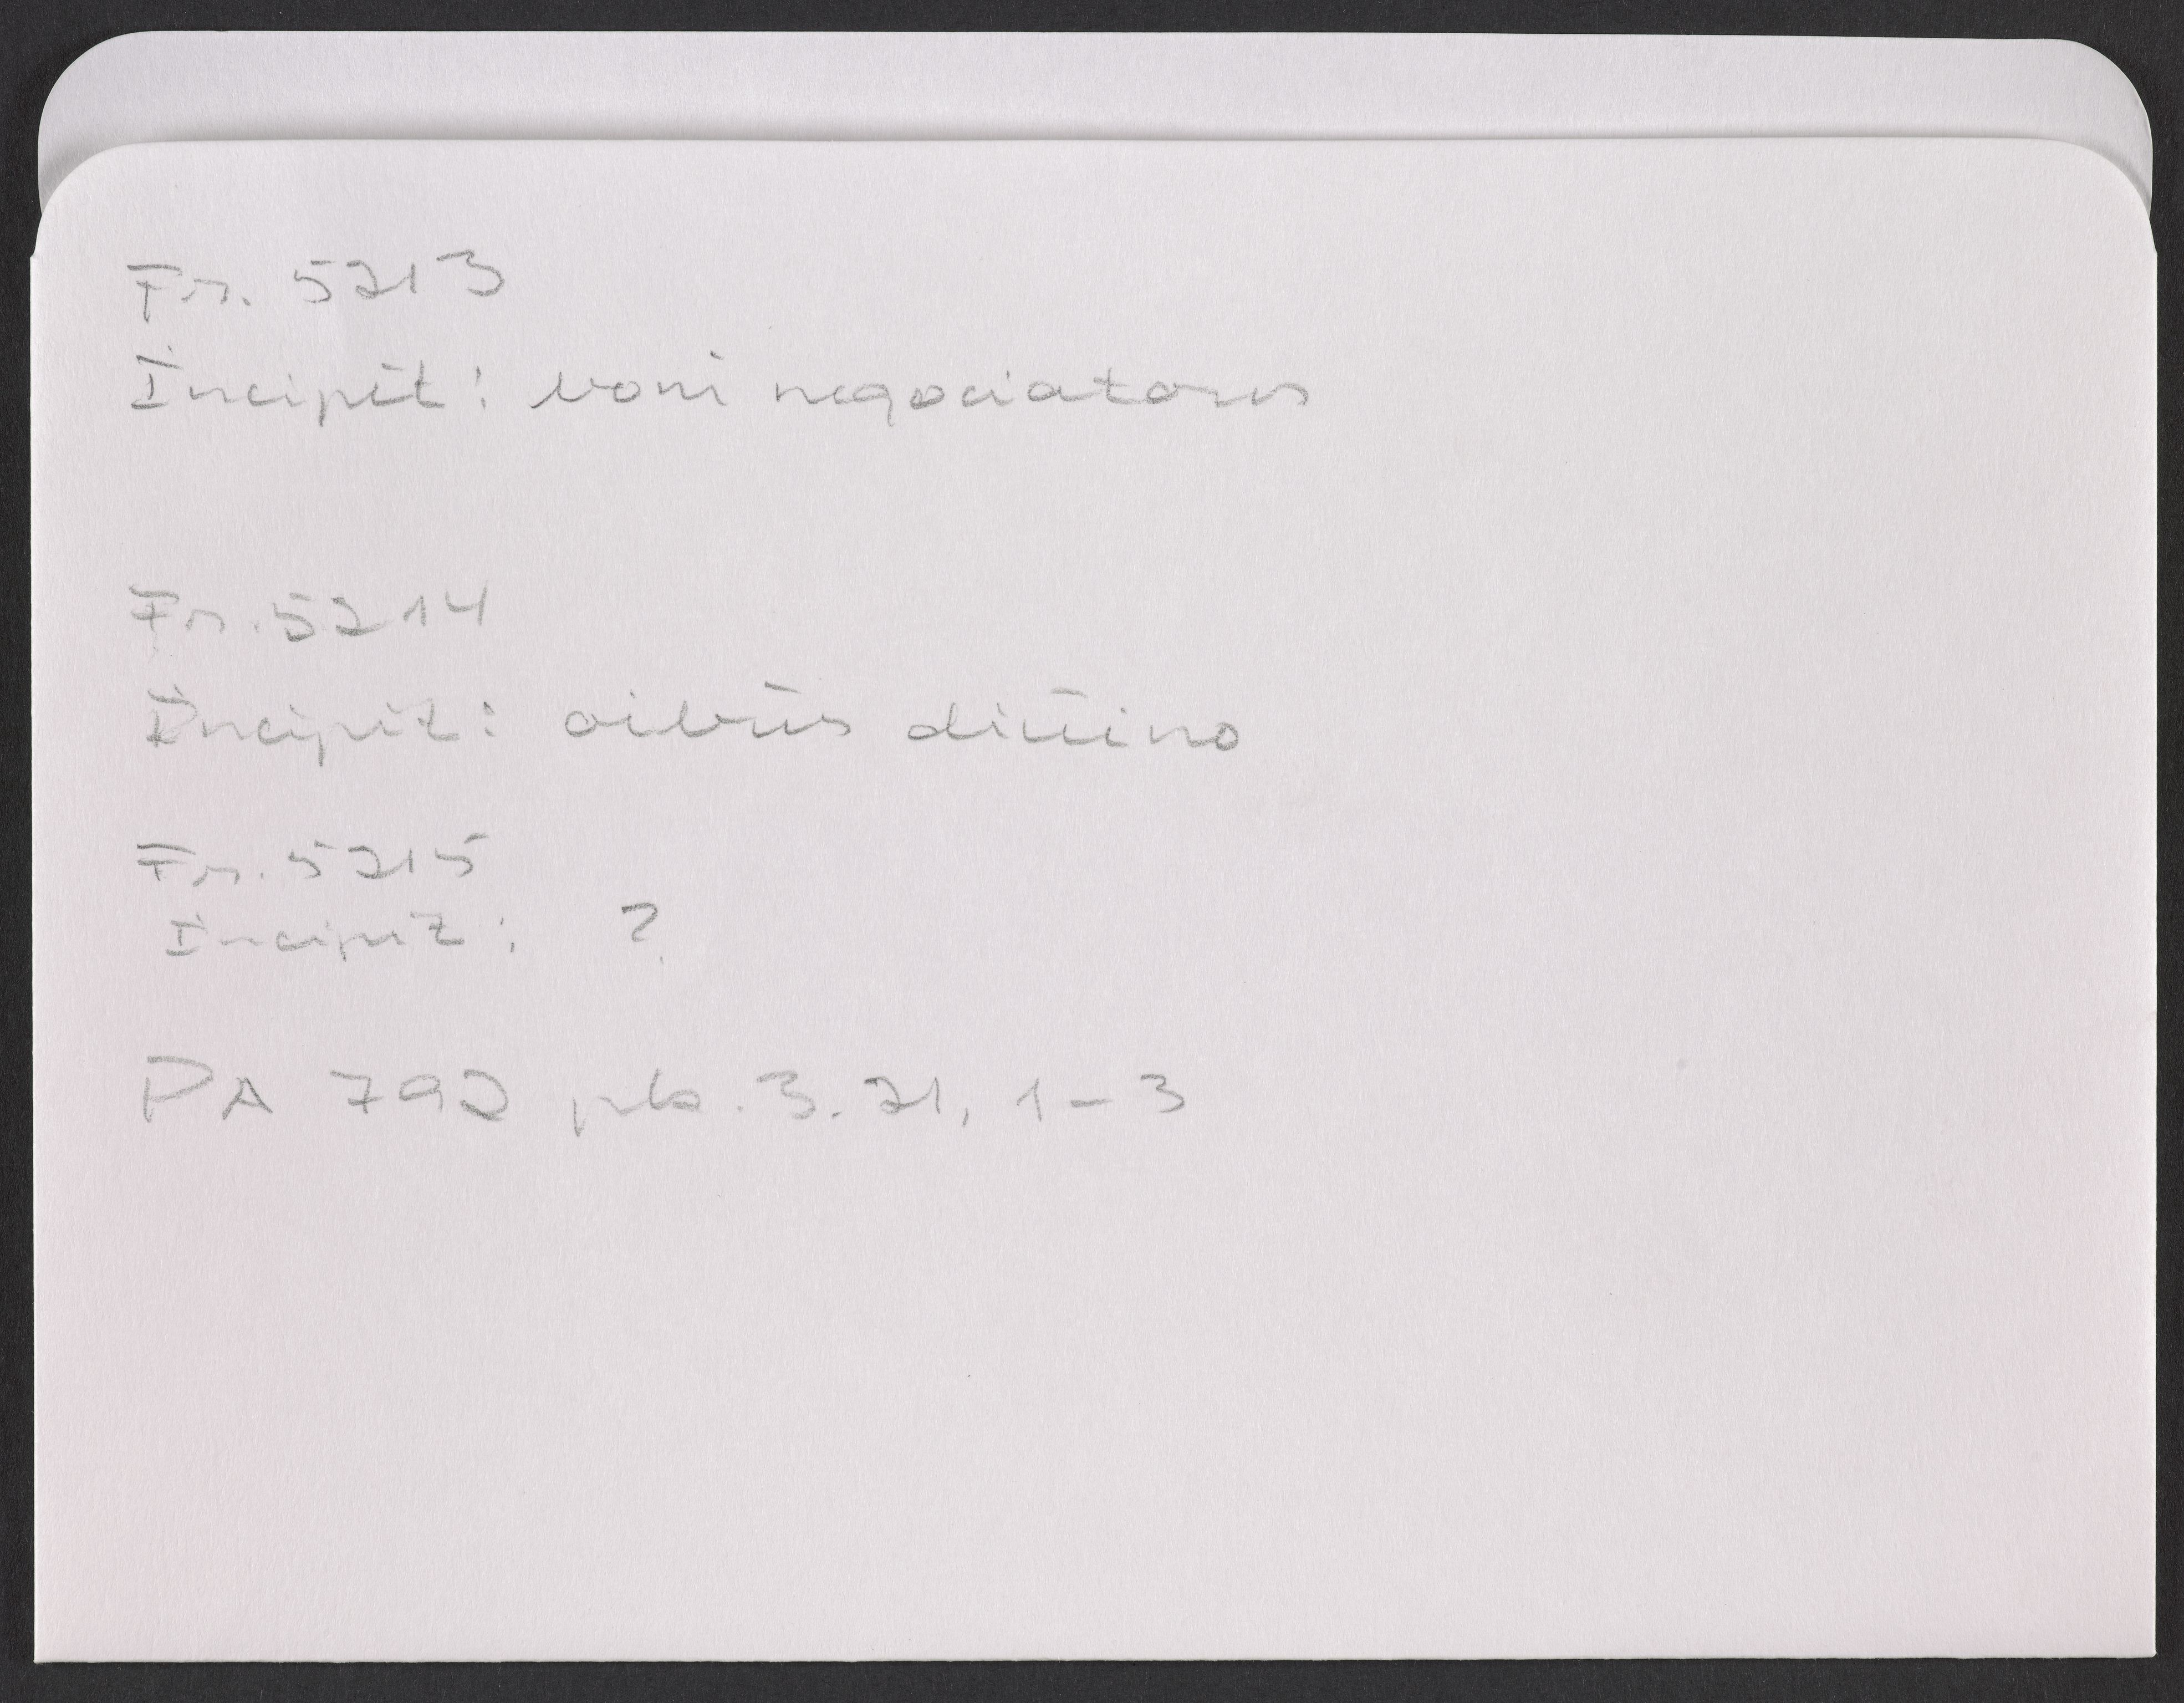 Fr. 5213
Incipit: boni negociatoris
Fr. 5214
Incipit: oibus diuino
Fr. 5215
Incipit: ?
PA 792 pb. 3.21, 1-3